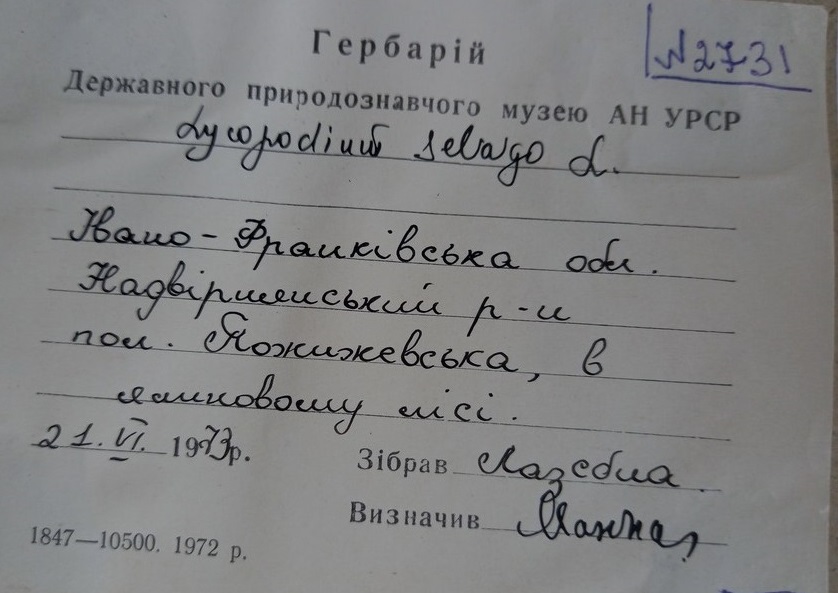 Гербарій
№ 2731
Державного природознавчого музею АН УРСР
Lycopodium selago L.
Івано-Франківська обл.
Надвірнянський р-н
пол. Пожижевська, в
ялиновому лісі.
21. VI. 1973р.
Зібрав Лазебна
Визначив
1847—10500. 1972 р.